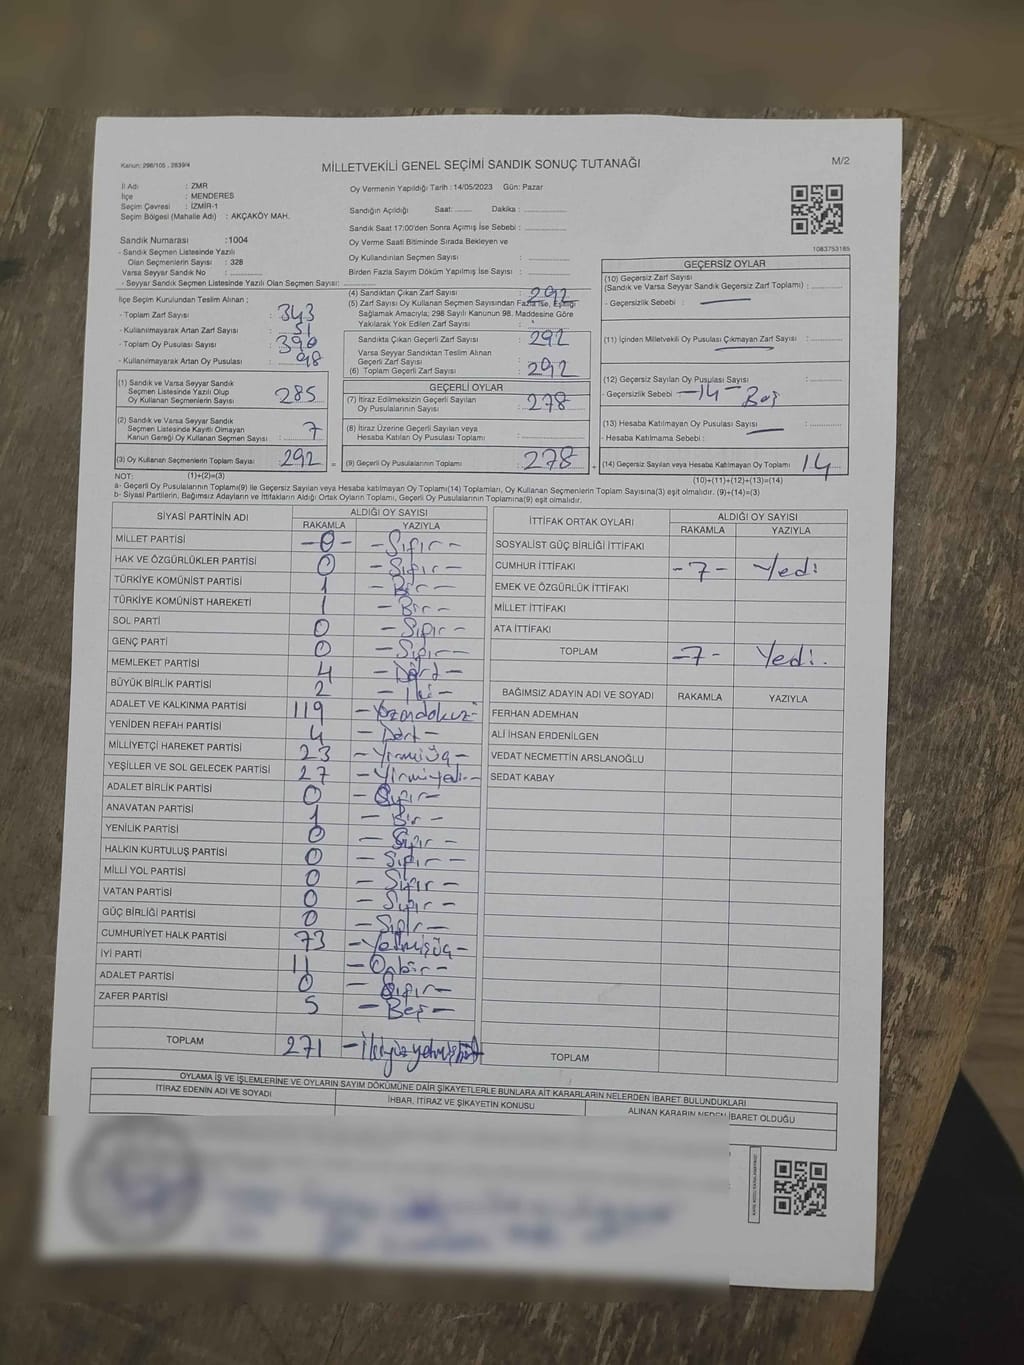 Kanun: 298/105 , 2839/4
MİLLETVEKİLİ GENEL SEÇİMİ SANDIK SONUÇ TUTANAĞI
M/2
İl Adı : ZMR
İlçe : MENDERES
Seçim Çevresi : İZMİR-1
Seçim Bölgesi (Mahalle Adı) : AKÇAKÖY MAH.
Sandık Numarası :1004
- Sandık Seçmen Listesinde Yazılı
Olan Seçmenlerin Sayısı : 328
Varsa Seyyar Sandık No : ............
- Seyyar Sandık Seçmen Listesinde Yazılı Olan Seçmen Sayısı: ............
İlçe Seçim Kurulundan Teslim Alınan ;
- Toplam Zarf Sayısı : 343
- Kullanılmayarak Artan Zarf Sayısı : 51
- Toplam Oy Pusulası Sayısı : 390
- Kullanılmayarak Artan Oy Pusulası : 98
(1) Sandık ve Varsa Seyyar Sandık
Seçmen Listesinde Yazılı Olup
Oy Kullanan Seçmenlerin Sayısı : 285
(2) Sandık ve Varsa Seyyar Sandık
Seçmen Listesinde Kayıtlı Olmayan
Kanun Gereği Oy Kullanan Seçmen Sayısı : 7
(3) Oy Kullanan Seçmenlerin Toplam Sayısı : 292 =
Oy Vermenin Yapıldığı Tarih : 14/05/2023 Gün: Pazar
Sandığın Açıldığı Saat: ...... Dakika : ............
Sandık Saat 17:00'den Sonra Açımış İse Sebebi : ............
Oy Verme Saati Bitiminde Sırada Bekleyen ve
Oy Kullandırılan Seçmen Sayısı : ............
Birden Fazla Sayım Döküm Yapılmış İse Sayısı : ............
(4) Sandıktan Çıkan Zarf Sayısı : 292
(5) Zarf Sayısı Oy Kullanan Seçmen Sayısından Fazla İse, Eşitliği
Sağlamak Amacıyla; 298 Sayılı Kanunun 98. Maddesine Göre
Yakılarak Yok Edilen Zarf Sayısı : ............
Sandıkta Çıkan Geçerli Zarf Sayısı : 292
Varsa Seyyar Sandıktan Teslim Alınan
Geçerli Zarf Sayısı : ............
(6) Toplam Geçerli Zarf Sayısı : 292
GEÇERLİ OYLAR
(7) İtiraz Edilmeksizin Geçerli Sayılan
Oy Pusulalarının Sayısı : 278
(8) İtiraz Üzerine Geçerli Sayılan veya
Hesaba Katılan Oy Pusulası Toplamı : ............
(9) Geçerli Oy Pusulalarının Toplamı : 278 +
1083753185
GEÇERSİZ OYLAR
(10) Geçersiz Zarf Sayısı
(Sandık ve Varsa Seyyar Sandık Geçersiz Zarf Toplamı) : ............
- Geçersizlik Sebebi :
(11) İçinden Milletvekili Oy Pusulası Çıkmayan Zarf Sayısı : ............
(12) Geçersiz Sayılan Oy Pusulası Sayısı : ............
- Geçersizlik Sebebi -14- Boş
(13) Hesaba Katılmayan Oy Pusulası Sayısı : ............
- Hesaba Katılmama Sebebi :
(14) Geçersiz Sayılan veya Hesaba Katılmayan Oy Toplamı 14
NOT: (1)+(2)=(3) (10)+(11)+(12)+(13)=(14)
a- Geçerli Oy Pusulalarının Toplamı(9) ile Geçersiz Sayılan veya Hesaba katılmayan Oy Toplamı(14) Toplamları, Oy Kullanan Seçmenlerin Toplam Sayısına(3) eşit olmalıdır. (9)+(14)=(3)
b- Siyasi Partilerin, Bağımsız Adayların ve İttifakların Aldığı Ortak Oyların Toplamı, Geçerli Oy Pusulalarının Toplamına(9) eşit olmalıdır.
SİYASİ PARTİNİN ADI ALDIĞI OY SAYISI
RAKAMLA YAZIYLA
MİLLET PARTİSİ -0- -Sıfır-
HAK VE ÖZGÜRLÜKLER PARTİSİ 0 -Sıfır-
TÜRKİYE KOMÜNİST PARTİSİ 1 -Bir-
TÜRKİYE KOMÜNİST HAREKETİ 1 -Bir-
SOL PARTİ 0 -Sıfır-
GENÇ PARTİ 0 -Sıfır-
MEMLEKET PARTİSİ 4 -Dört-
BÜYÜK BİRLİK PARTİSİ 2 -İki-
ADALET VE KALKINMA PARTİSİ 119 -Yüzondokuz-
YENİDEN REFAH PARTİSİ 4 -Dört-
MİLLİYETÇİ HAREKET PARTİSİ 23 -Yirmiüç-
YEŞİLLER VE SOL GELECEK PARTİSİ 27 -Yirmiyedi-
ADALET BİRLİK PARTİSİ 0 -Sıfır-
ANAVATAN PARTİSİ 1 -Bir-
YENİLİK PARTİSİ 0 -Sıfır-
HALKIN KURTULUŞ PARTİSİ 0 -Sıfır-
MİLLİ YOL PARTİSİ 0 -Sıfır-
VATAN PARTİSİ 0 -Sıfır-
GÜÇ BİRLİĞİ PARTİSİ 0 -Sıfır-
CUMHURİYET HALK PARTİSİ 73 -Yetmişüç-
İYİ PARTİ 11 -Onbir-
ADALET PARTİSİ 0 -Sıfır-
ZAFER PARTİSİ 5 -Beş-
TOPLAM 271 -İkiyüzyetmişbir-
İTTİFAK ORTAK OYLARI ALDIĞI OY SAYISI
RAKAMLA YAZIYLA
SOSYALİST GÜÇ BİRLİĞİ İTTİFAKI
CUMHUR İTTİFAKI -7- Yedi
EMEK VE ÖZGÜRLÜK İTTİFAKI
MİLLET İTTİFAKI
ATA İTTİFAKI
TOPLAM -7- Yedi.
BAĞIMSIZ ADAYIN ADI VE SOYADI RAKAMLA YAZIYLA
FERHAN ADEMHAN
ALİ İHSAN ERDENİLGEN
VEDAT NECMETTİN ARSLANOĞLU
SEDAT KABAY
TOPLAM
OYLAMA İŞ VE İŞLEMLERİNE VE OYLARIN SAYIM DÖKÜMÜNE DAİR ŞİKAYETLERLE BUNLARA AİT KARARLARIN NELERDEN İBARET BULUNDUKLARI
İTİRAZ EDENİN ADI VE SOYADI İHBAR, İTİRAZ VE ŞİKAYETİN KONUSU ALINAN KARARIN NEDEN İBARET OLDUĞU